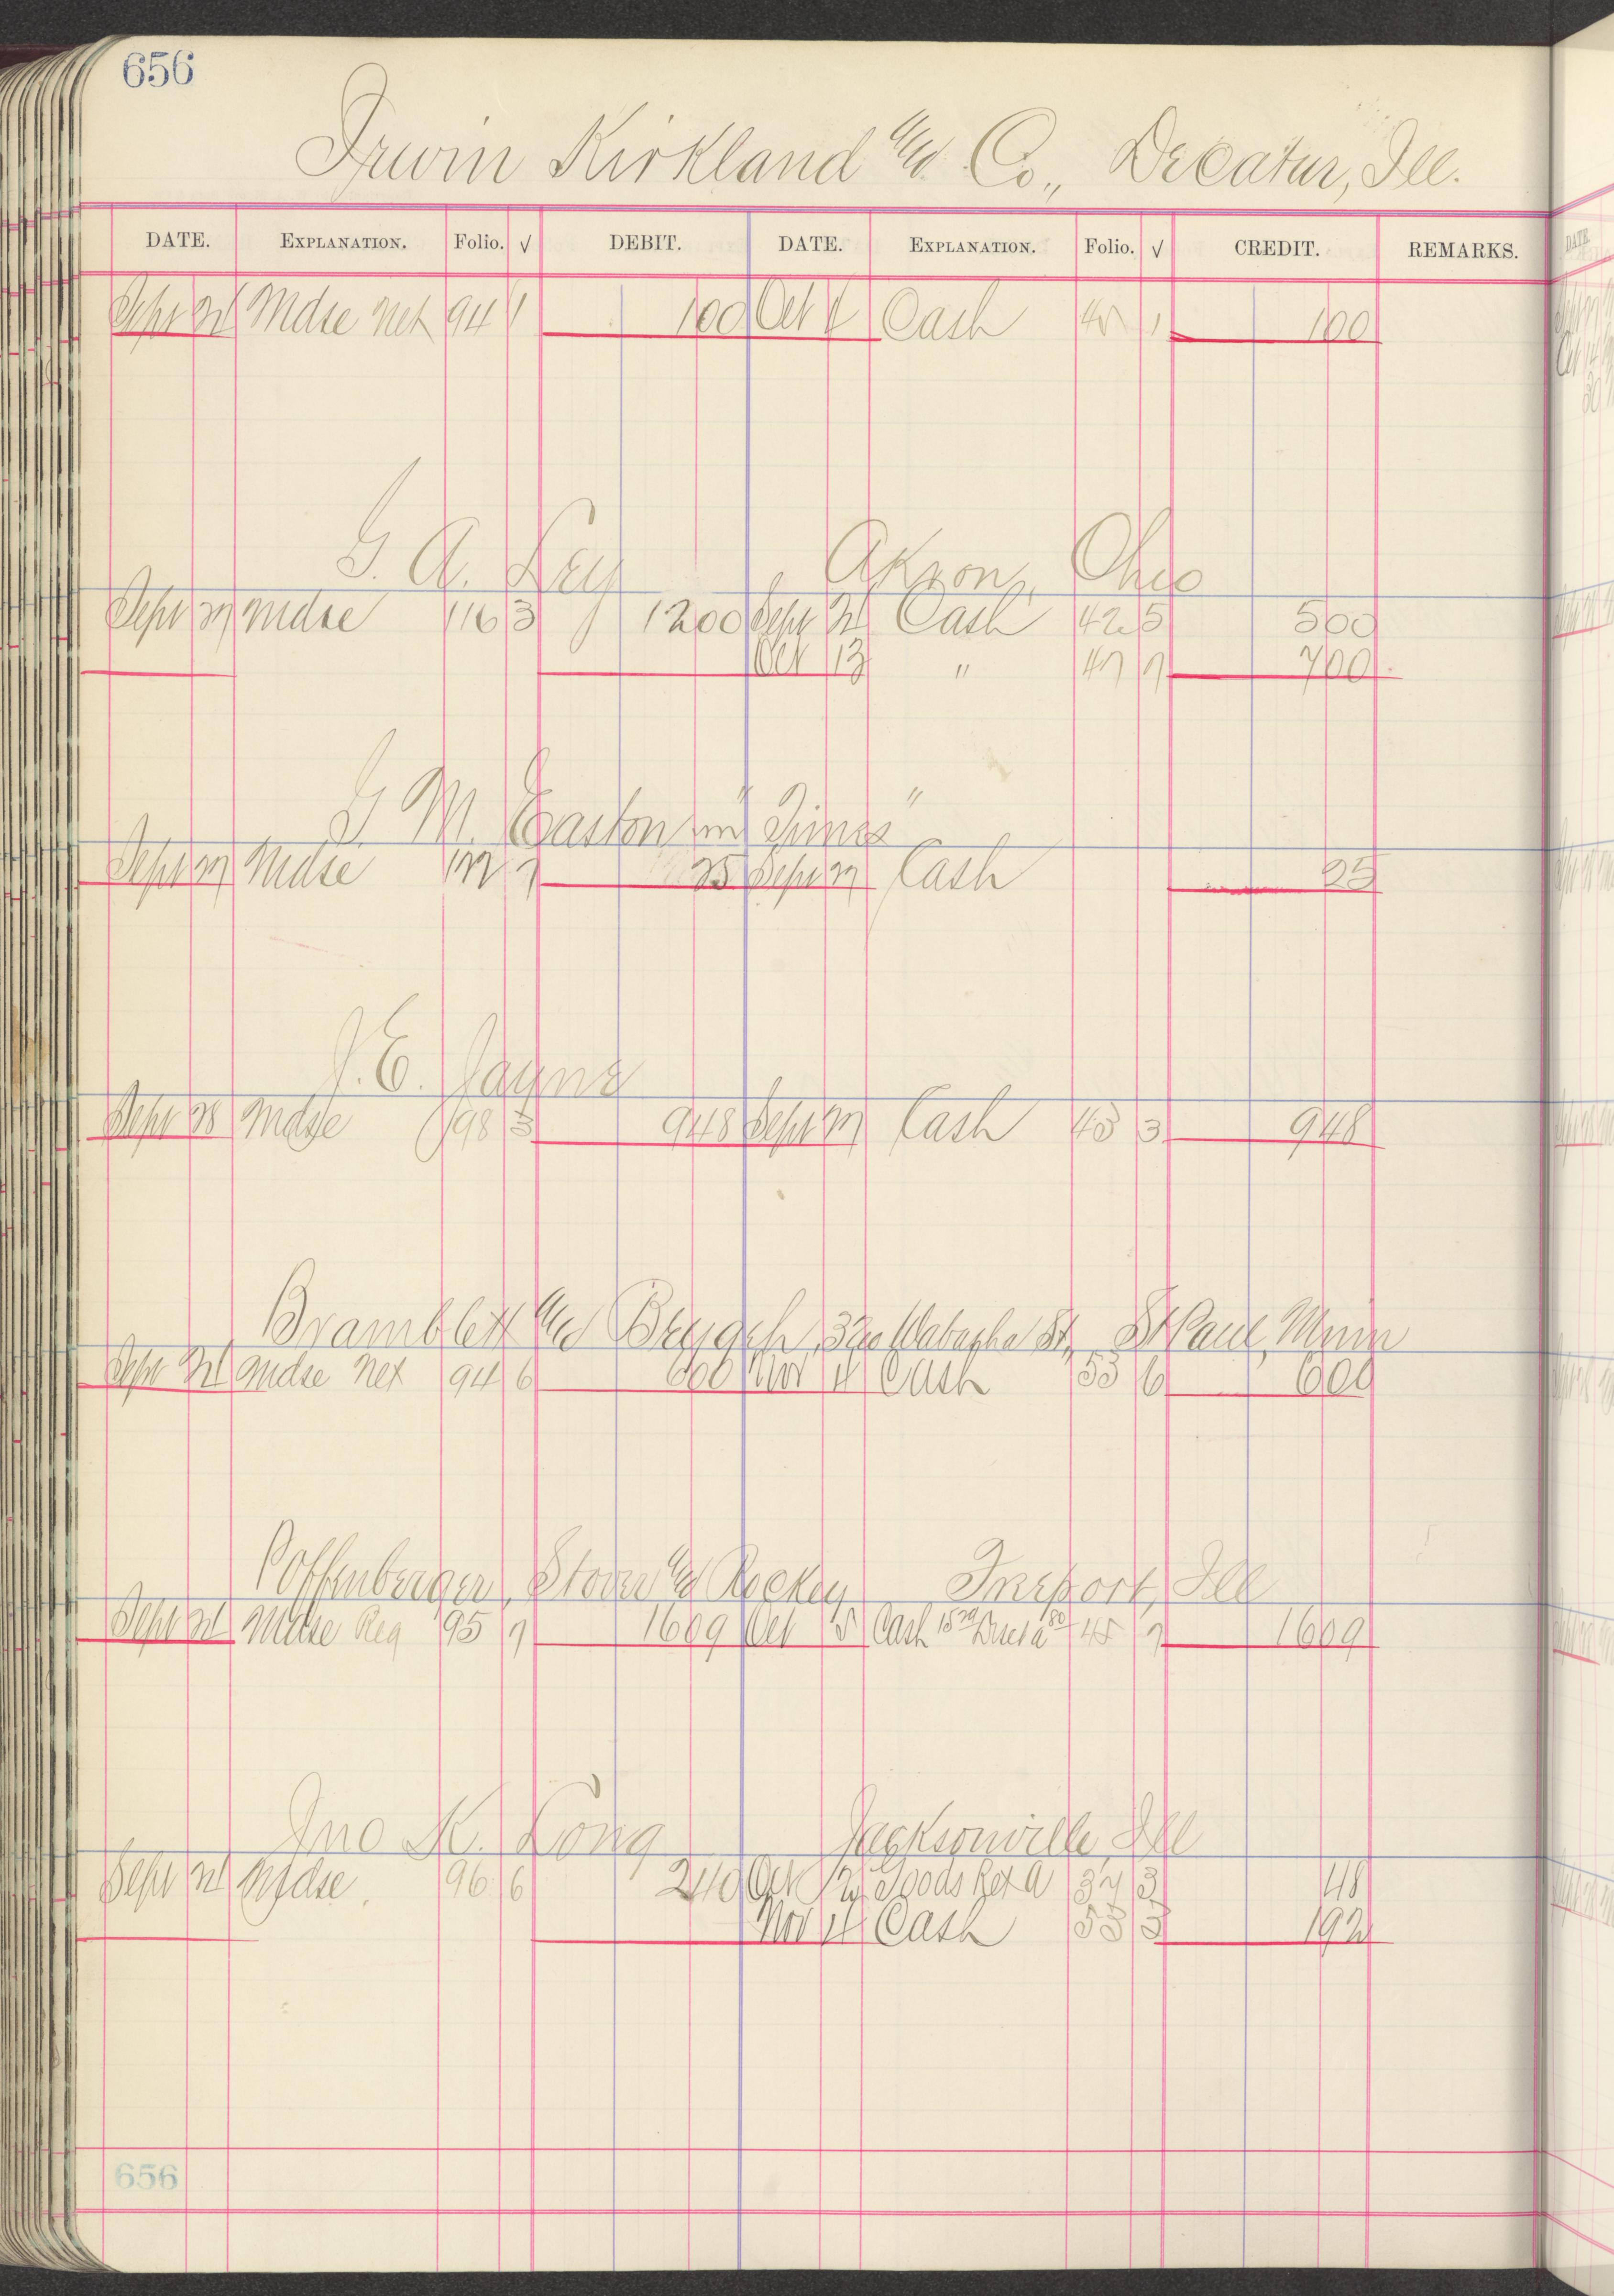 656
Irwin Kirkland & Co., Decatur, Ill.
DATE. EXPLANATION. Folio. √ DEBIT. DATE. EXPLANATION. Folio. √ CREDIT. REMARKS.
Sept Mdse Net 94 1 100 Oct Cash 1 100
G. A. Key Akron, Ohio
Sept Mdse 116 3 1200 Sept Cash 42 5 500
Oct 13 " 47 7 700
G M. Easton "Times"
Sept Mdse 25 Sept Cash 25
J. E. Jayne
Sept 28 Mdse 98 3 948 Sept Cash 43 3 948
Bramblett & Beygeh, 320 Wabasha St, St Paul, Minn
Sept Mdse Net 94 6 600 Nov 11 Cash 53 6 600
Poffenberger, Stover & Freeport, Ill
Sept Mdse Reg 95 7 1609 Oct 5 Cash 45 7 1609
Jno K. Long Jacksonville, Ill
Sept Mdse. 96 6 240 Oct Goods Ret'd 3 48
Nov 11 Cash 53 3 192
656